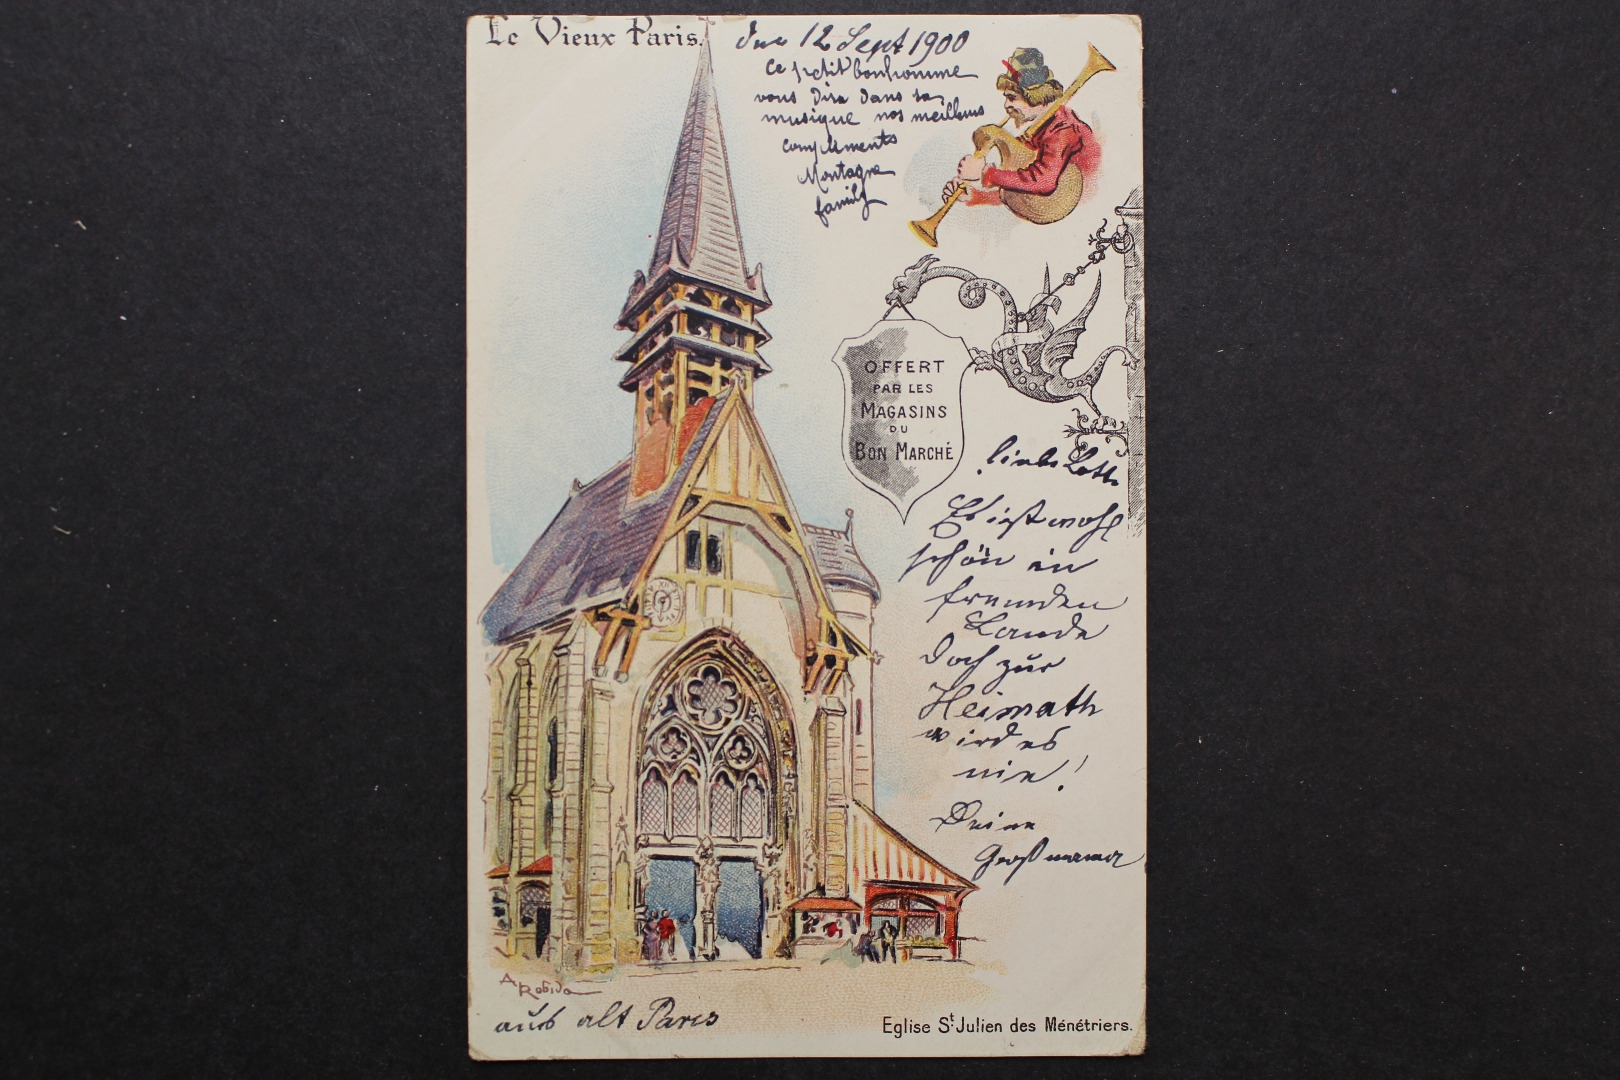 Le Vieux Paris.
den 12 Sept 1900
ce petit bonhomme
vous dira dans sa
musique nos meilleurs
compliments
Montagne
family
OFFERT
PAR LES
MAGASINS
DU
BON MARCHÉ
liebe Lotte
Es ist wohl
schön im
fremden
Lande
doch zur
Heimath
wird es
nie!
Deine
Großmama
A. Robida
aus alt Paris
Eglise St Julien des Ménétriers.